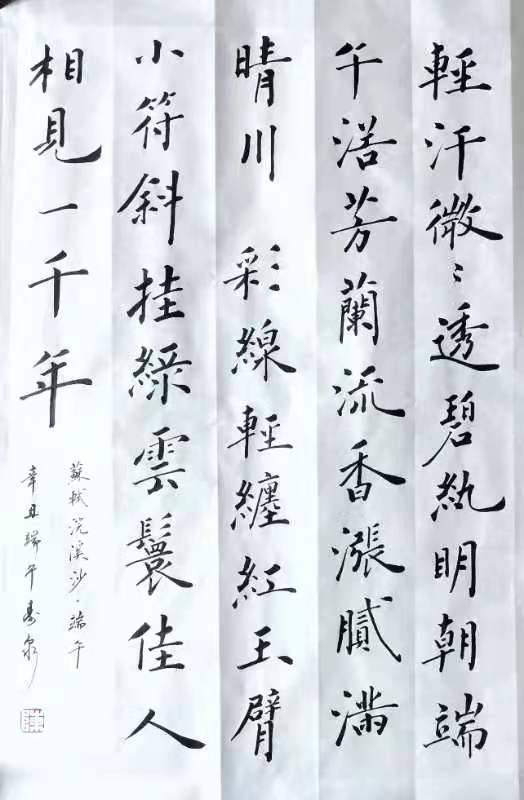 輕汗微〻透碧紈明朝端
午浴芳蘭流香漲膩滿
晴川 彩線輕纏紅玉臂
小符斜挂綠雲鬟佳人
相見一千年
蘇軾浣溪沙·端午
辛丑端午